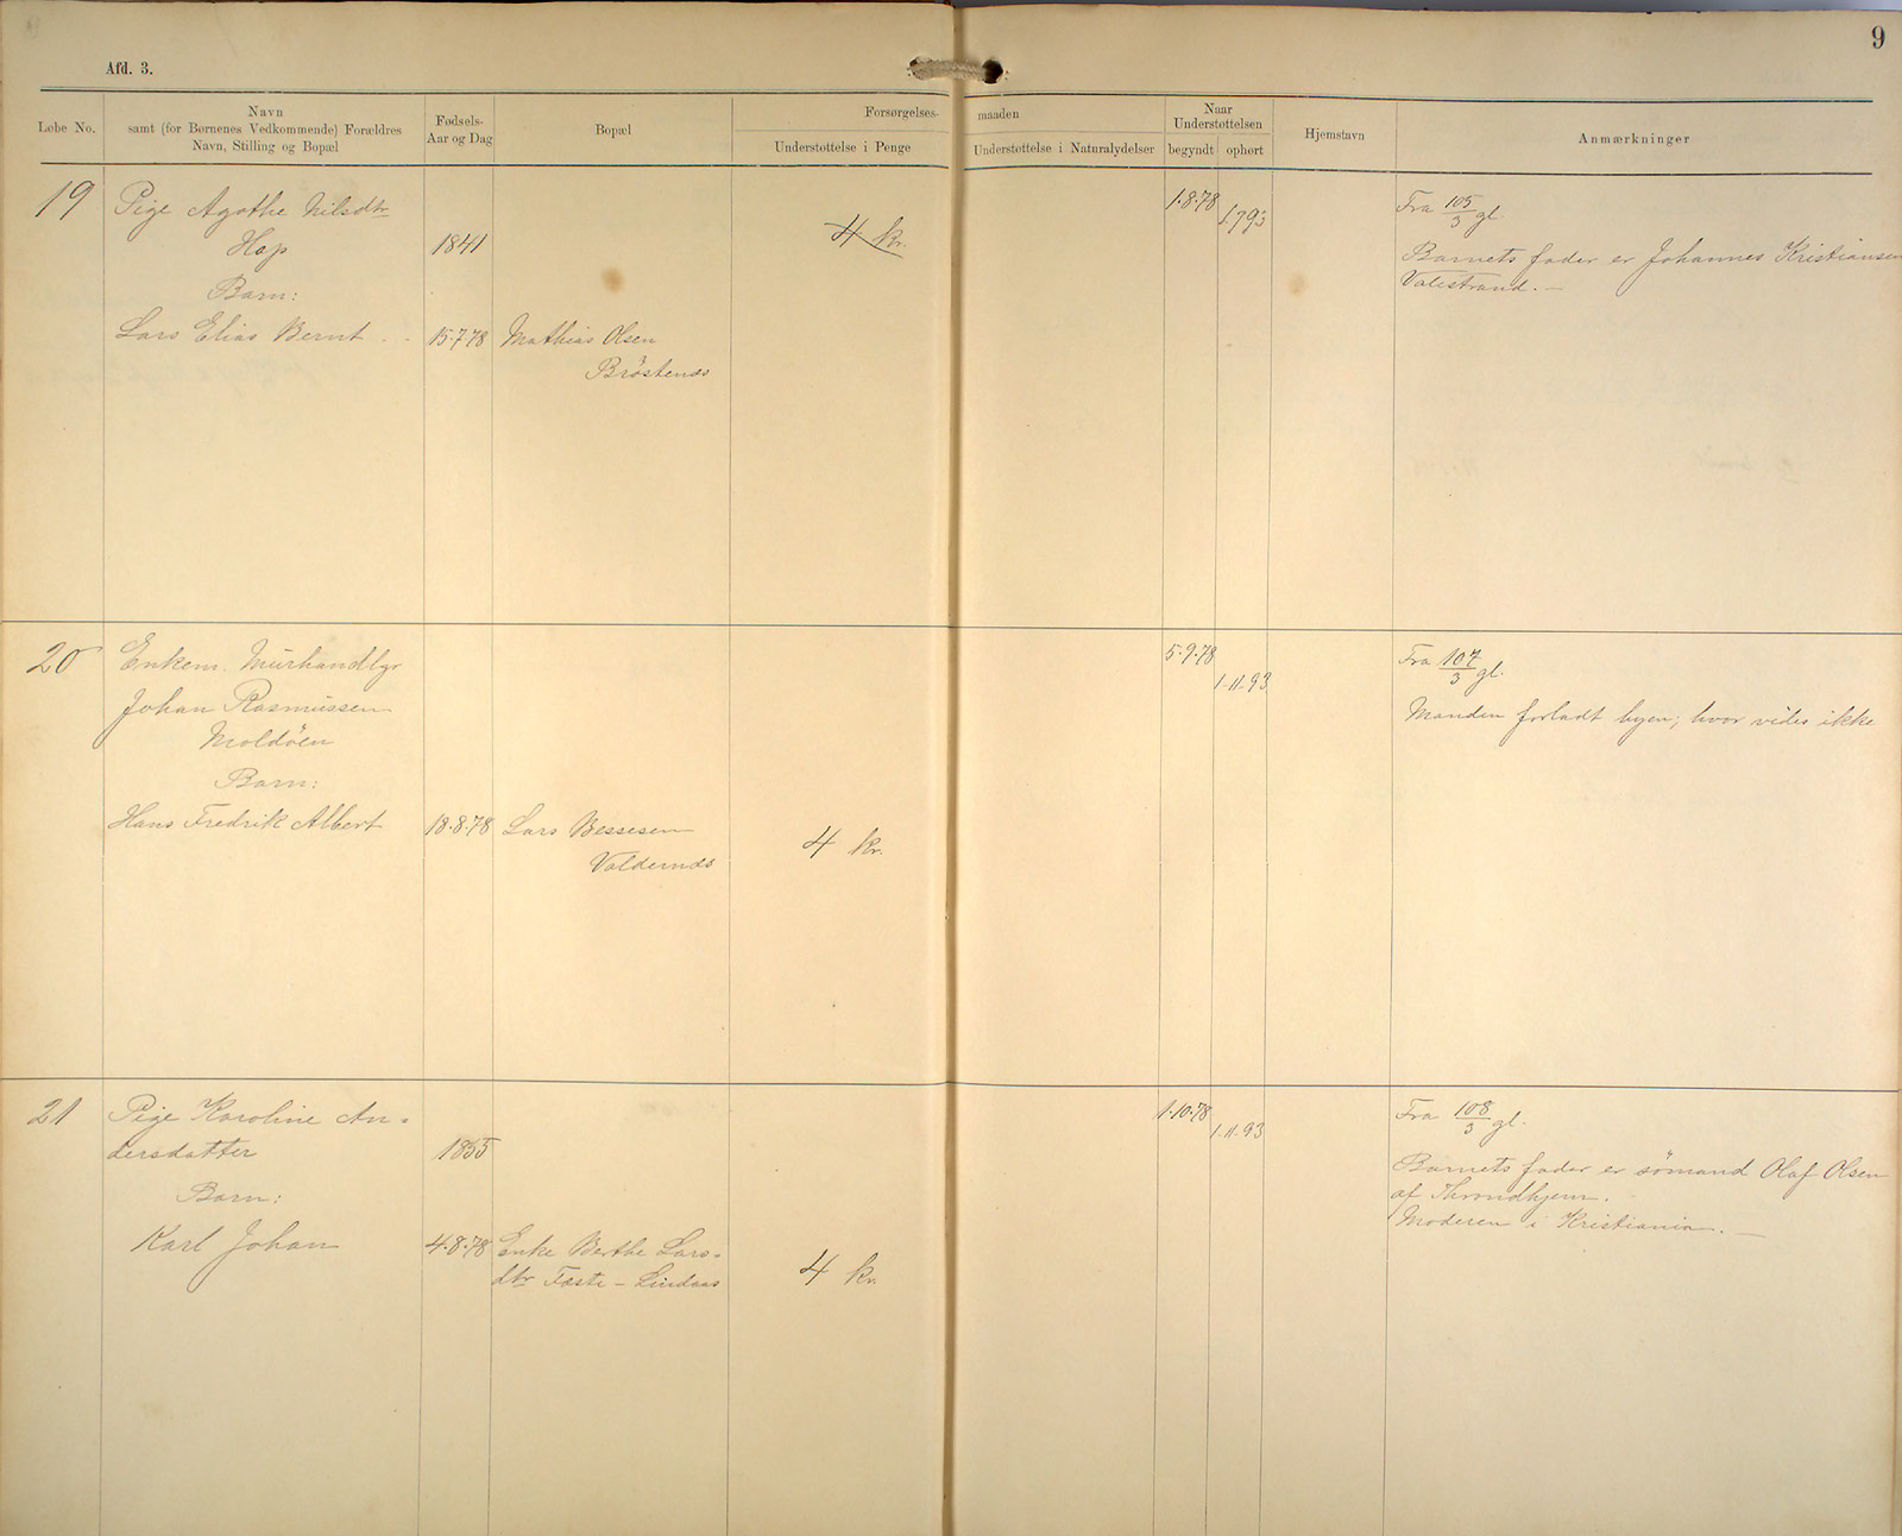 9
Afd. 3.
Løbe No.
Navn
samt (for Børnenes Vedkommende) Forældres
Navn, Stilling og Bopæl
Fødsels-
Aar og Dag
Bopæl
Forsørgelses-
maaden
Understøttelse i Penge
Understøttelse i Naturalydelser
Naar
Understøttelsen
begyndt
ophørt
Hjemstavn
Anmærkninger
19
Pige Agathe Nilsdtr
Hop
1841
Barn:
Lars Elias Bernt
15.7.78
Mathias Olsen
Bröstenæs
4 kr.
1.8.78
1.7.93
Fra 105/3 gl.
Barnets fader er Johannes Kristiansen
Valestrand. —
20
Enkem. Murhandlgr
Johan Rasmussen
Moldöen
Barn:
Hans Fredrik Albert
18.8.78
Lars Bessesen
Valdernæs
4 kr.
5.9.78
1.11.93
Fra 107/3 gl.
Manden forladt byen; hvor vides ikke
21
Pige Karoline An=
dersdatter
1855
Barn:
Karl Johan
4.8.78
Enke Berthe Lars=
dtr Faste – Lindaas
4 kr.
1.10.78
1.11.93
Fra 108/3 gl.
Barnets fader er sömand Olaf Olsen
af Throndhjem.
Moderen i Kristiania. —